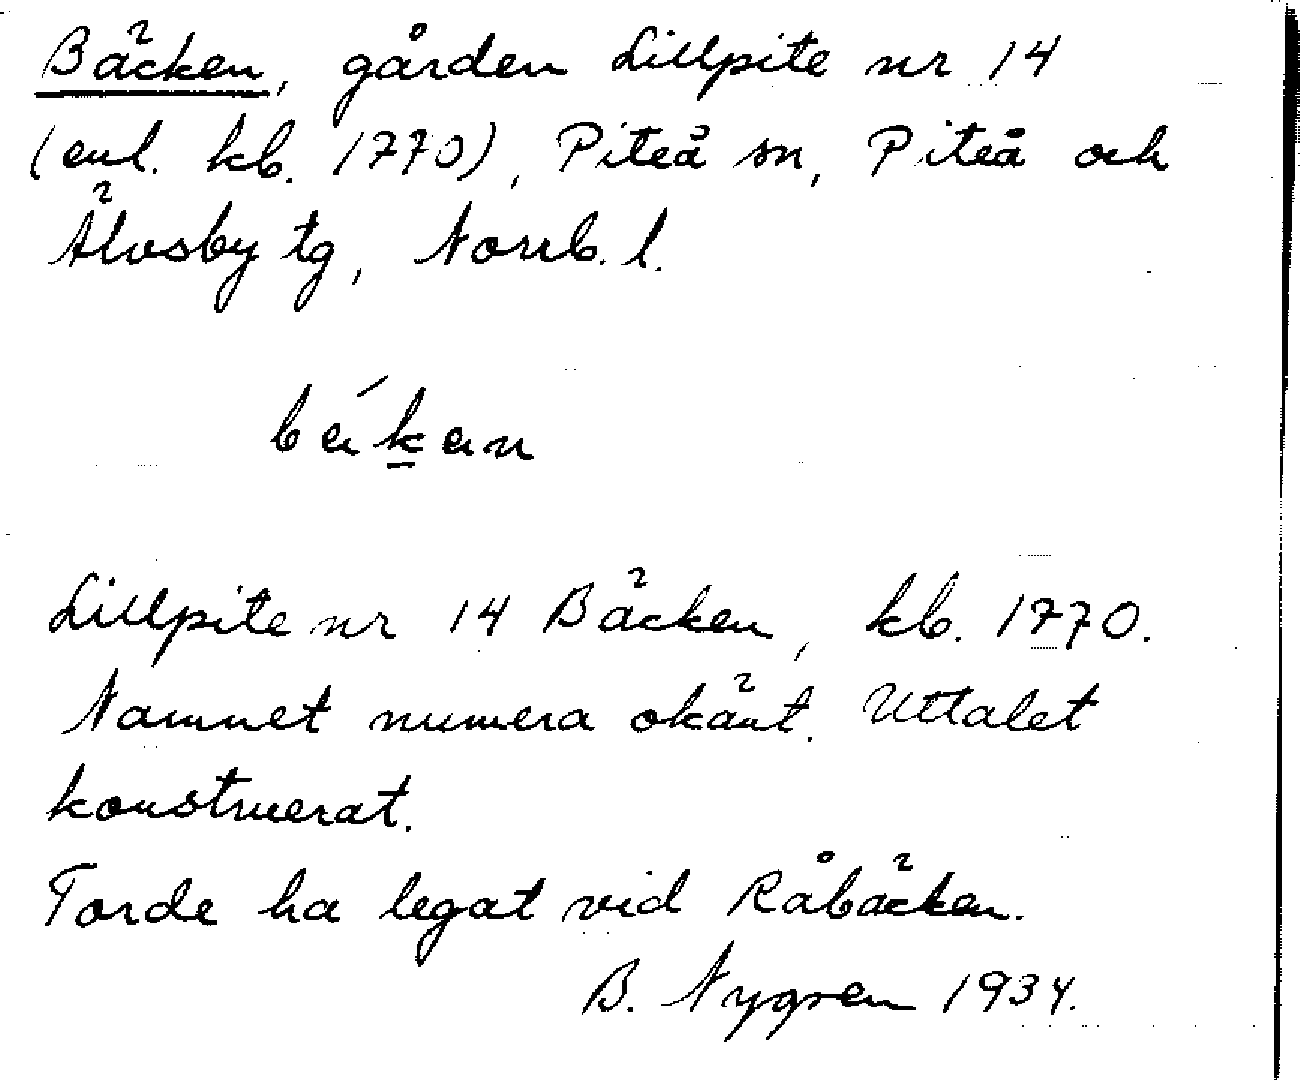 Bäcken, gården Lillpite nr 14
(enl. kb. 1770), Piteå sn, Piteå och
Älvsby tg, Norrb. l.
bä́kän
Lillpite nr 14 Bäcken, kb. 1770.
Namnet numera okänt. Uttalet
konstruerat.
Torde ha legat vid Råbäcken.
B. Nygren 1934.